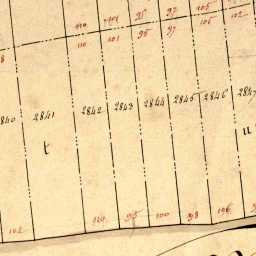 110 101 95 97 105 102
110 101 96 97 105 102
8
2840 2841 2842 2843 2844 2845 2846 2847
t u
102 110 95 100 98 106